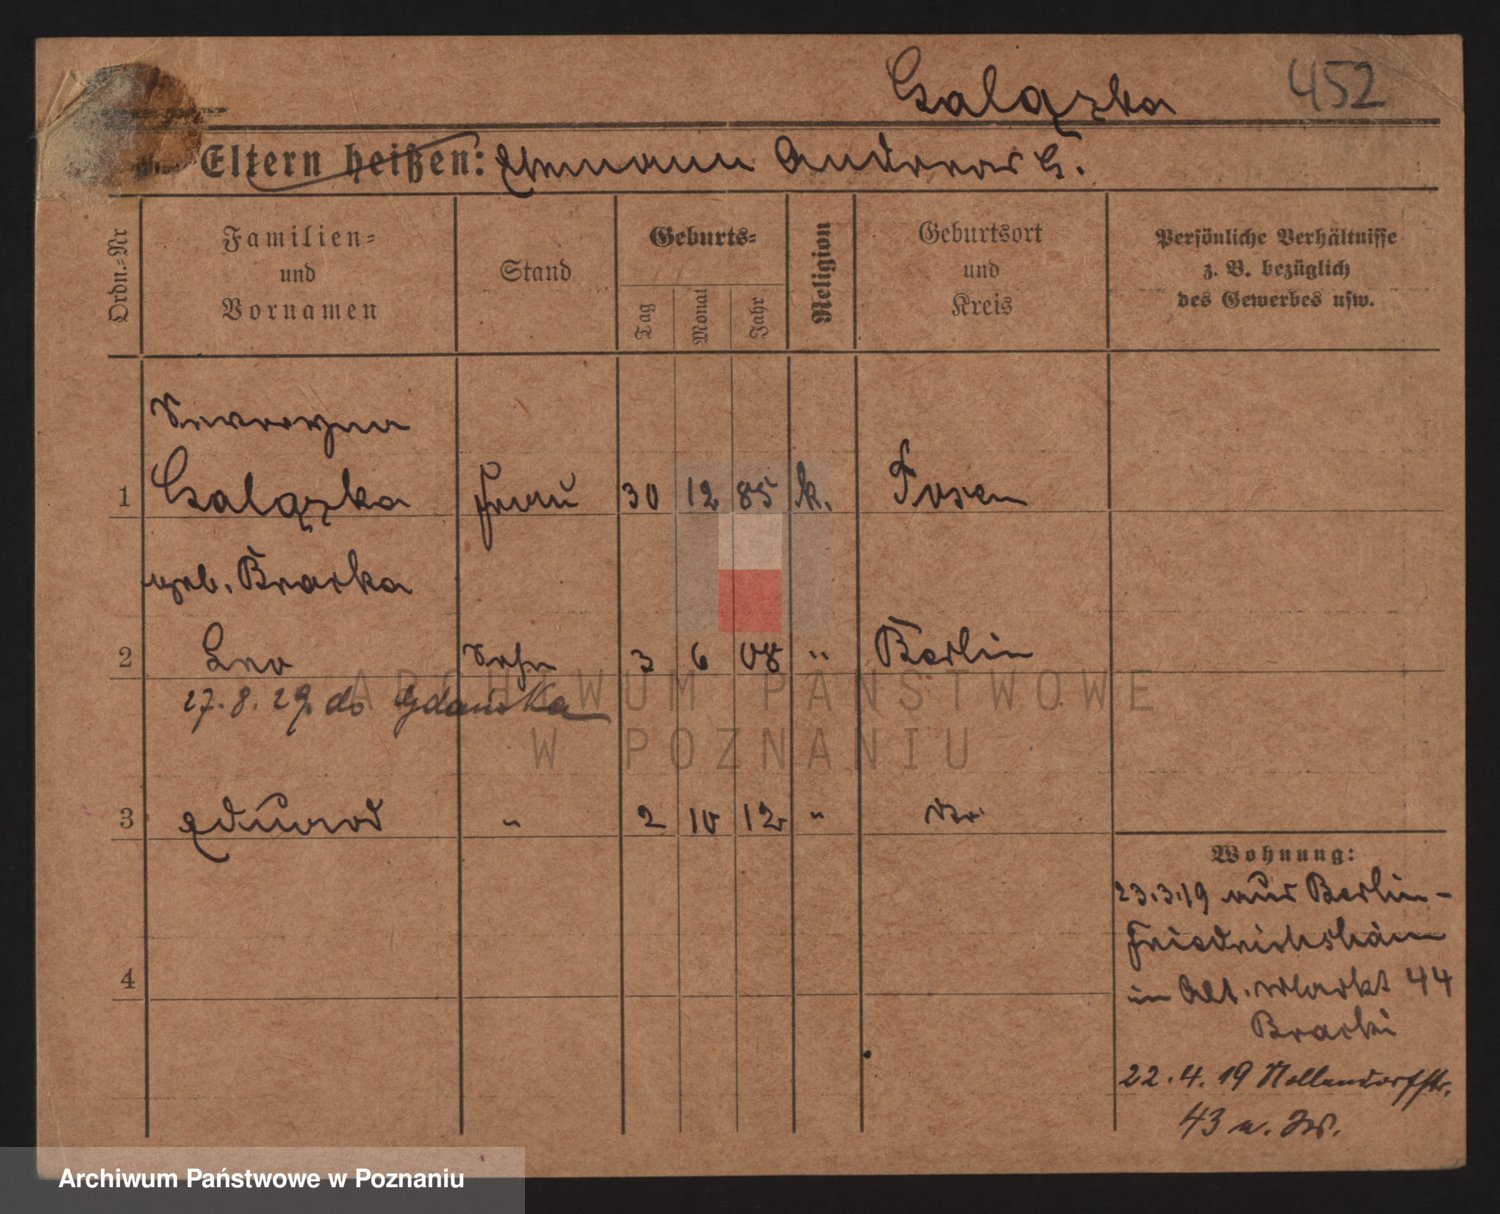 Galązka 452
Eltern heißen: Ehemann Andreas G.
Ordn.-Nr
Familien-
und
Vornamen
Stand
Geburts-
Tag
Monat
Jahr
Religion
Geburtsort
und
Kreis
Persönliche Verhältnisse
z. B. bezüglich
des Gewerbes usw.
1 Galązka Frau 30 12 85 k. Posen
geb. Braska
2 Leo Sohn 3 6 08 " Berlin
27.8.29. do Gdańska
3 Eduard " 2 10 12 "
Wohnung:
23.3.19 aus Berlin-
in Alt. Markt 44
22.4.19 Nollendorfstr.
43
4
ARCHIWUM PAŃSTWOWE
W POZNANIU
Archiwum Państwowe w Poznaniu